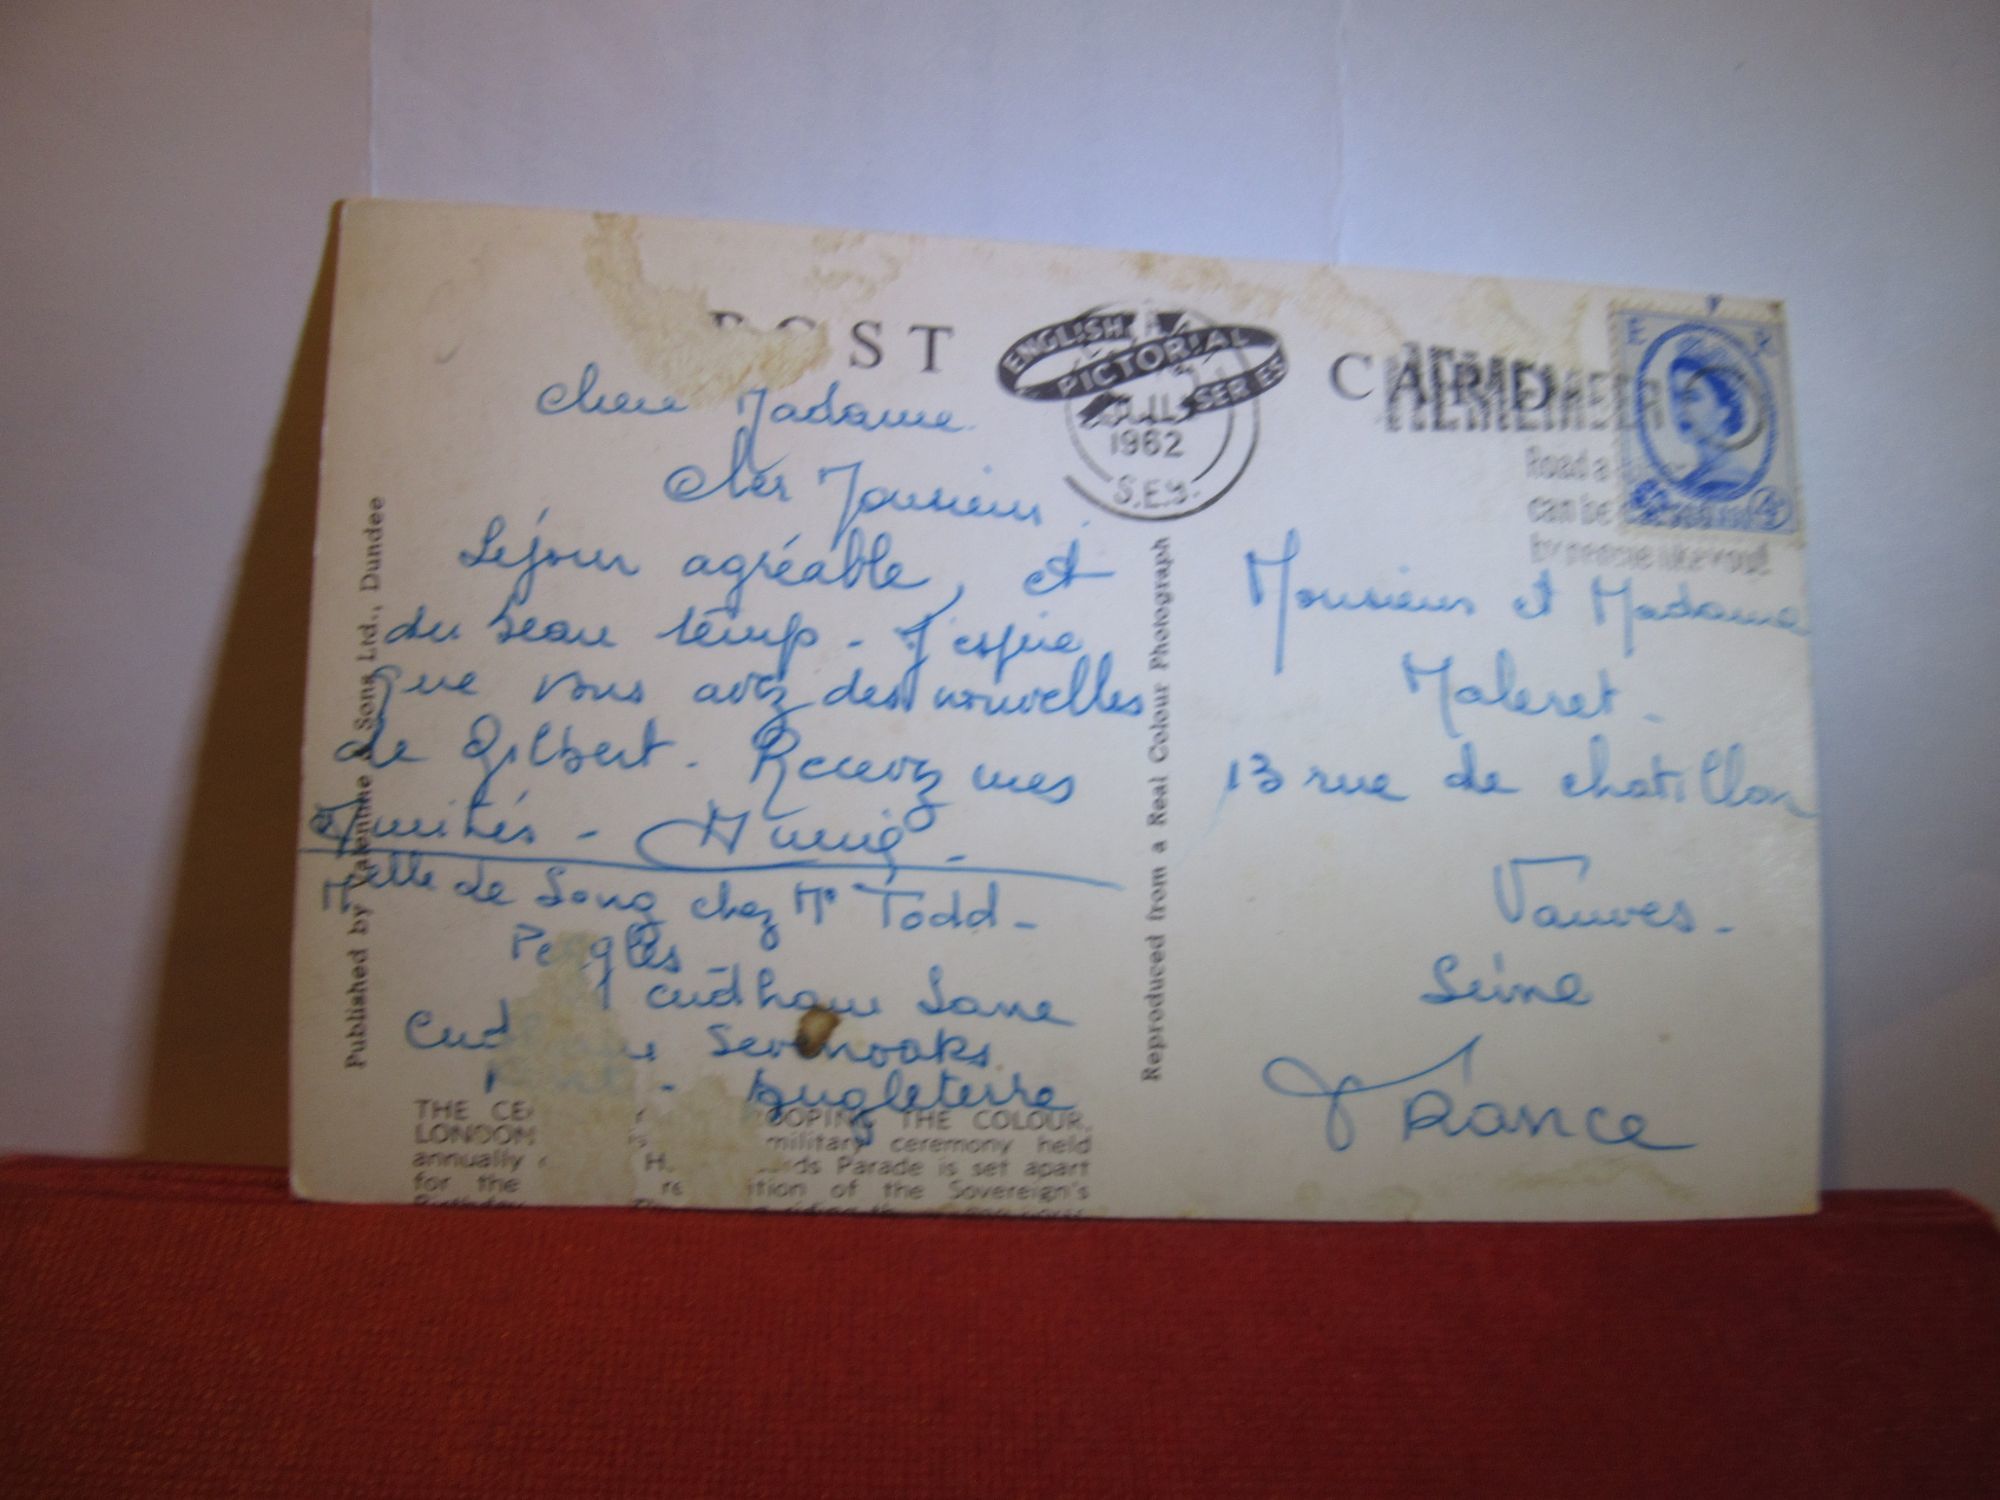 POST CARD
ENGLISH
PICTORIAL
SERIES
JLY
1962
S.E.9.
REMEMBER
Road a
can be
by people like you!
Chere Madame
Cher Monsieur.
Séjour agréable, et
du beau temps - J'espère
que vous avez des nouvelles
de Gilbert. Recevez mes
Amitiés - Annie -
Melle de Long chez Mr Todd -
Cudham Lane
Sevenoaks
Kent - Angleterre
Monsieur et Madame
Maleret -
13 rue de chatillon
Vanves -
Seine
France
Published by Valentine & Sons, Ltd., Dundee
Reproduced from a Real Colour Photograph
THE OOPING THE COLOUR,
LONDON military ceremony held
annually Parade is set apart
for the of the Sovereign's
Birthday